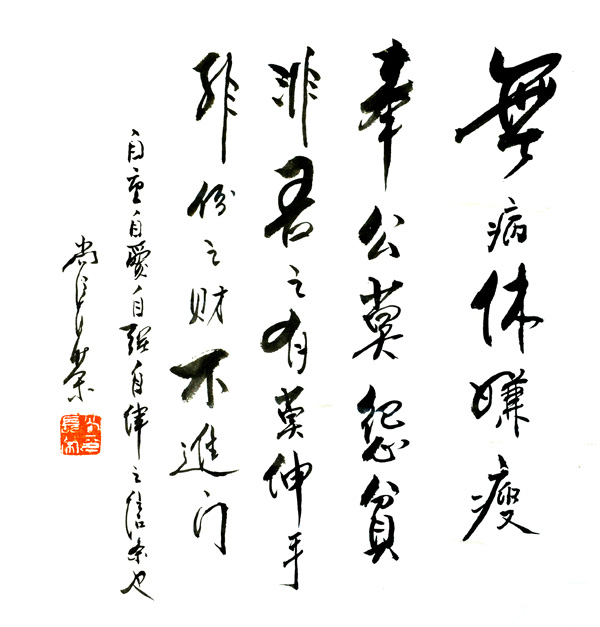 無病休嫌瘦
奉公莫怨貧
非吾之有莫伸手
非份之财不進门
自重自愛自强自律之信条也
尚长荣